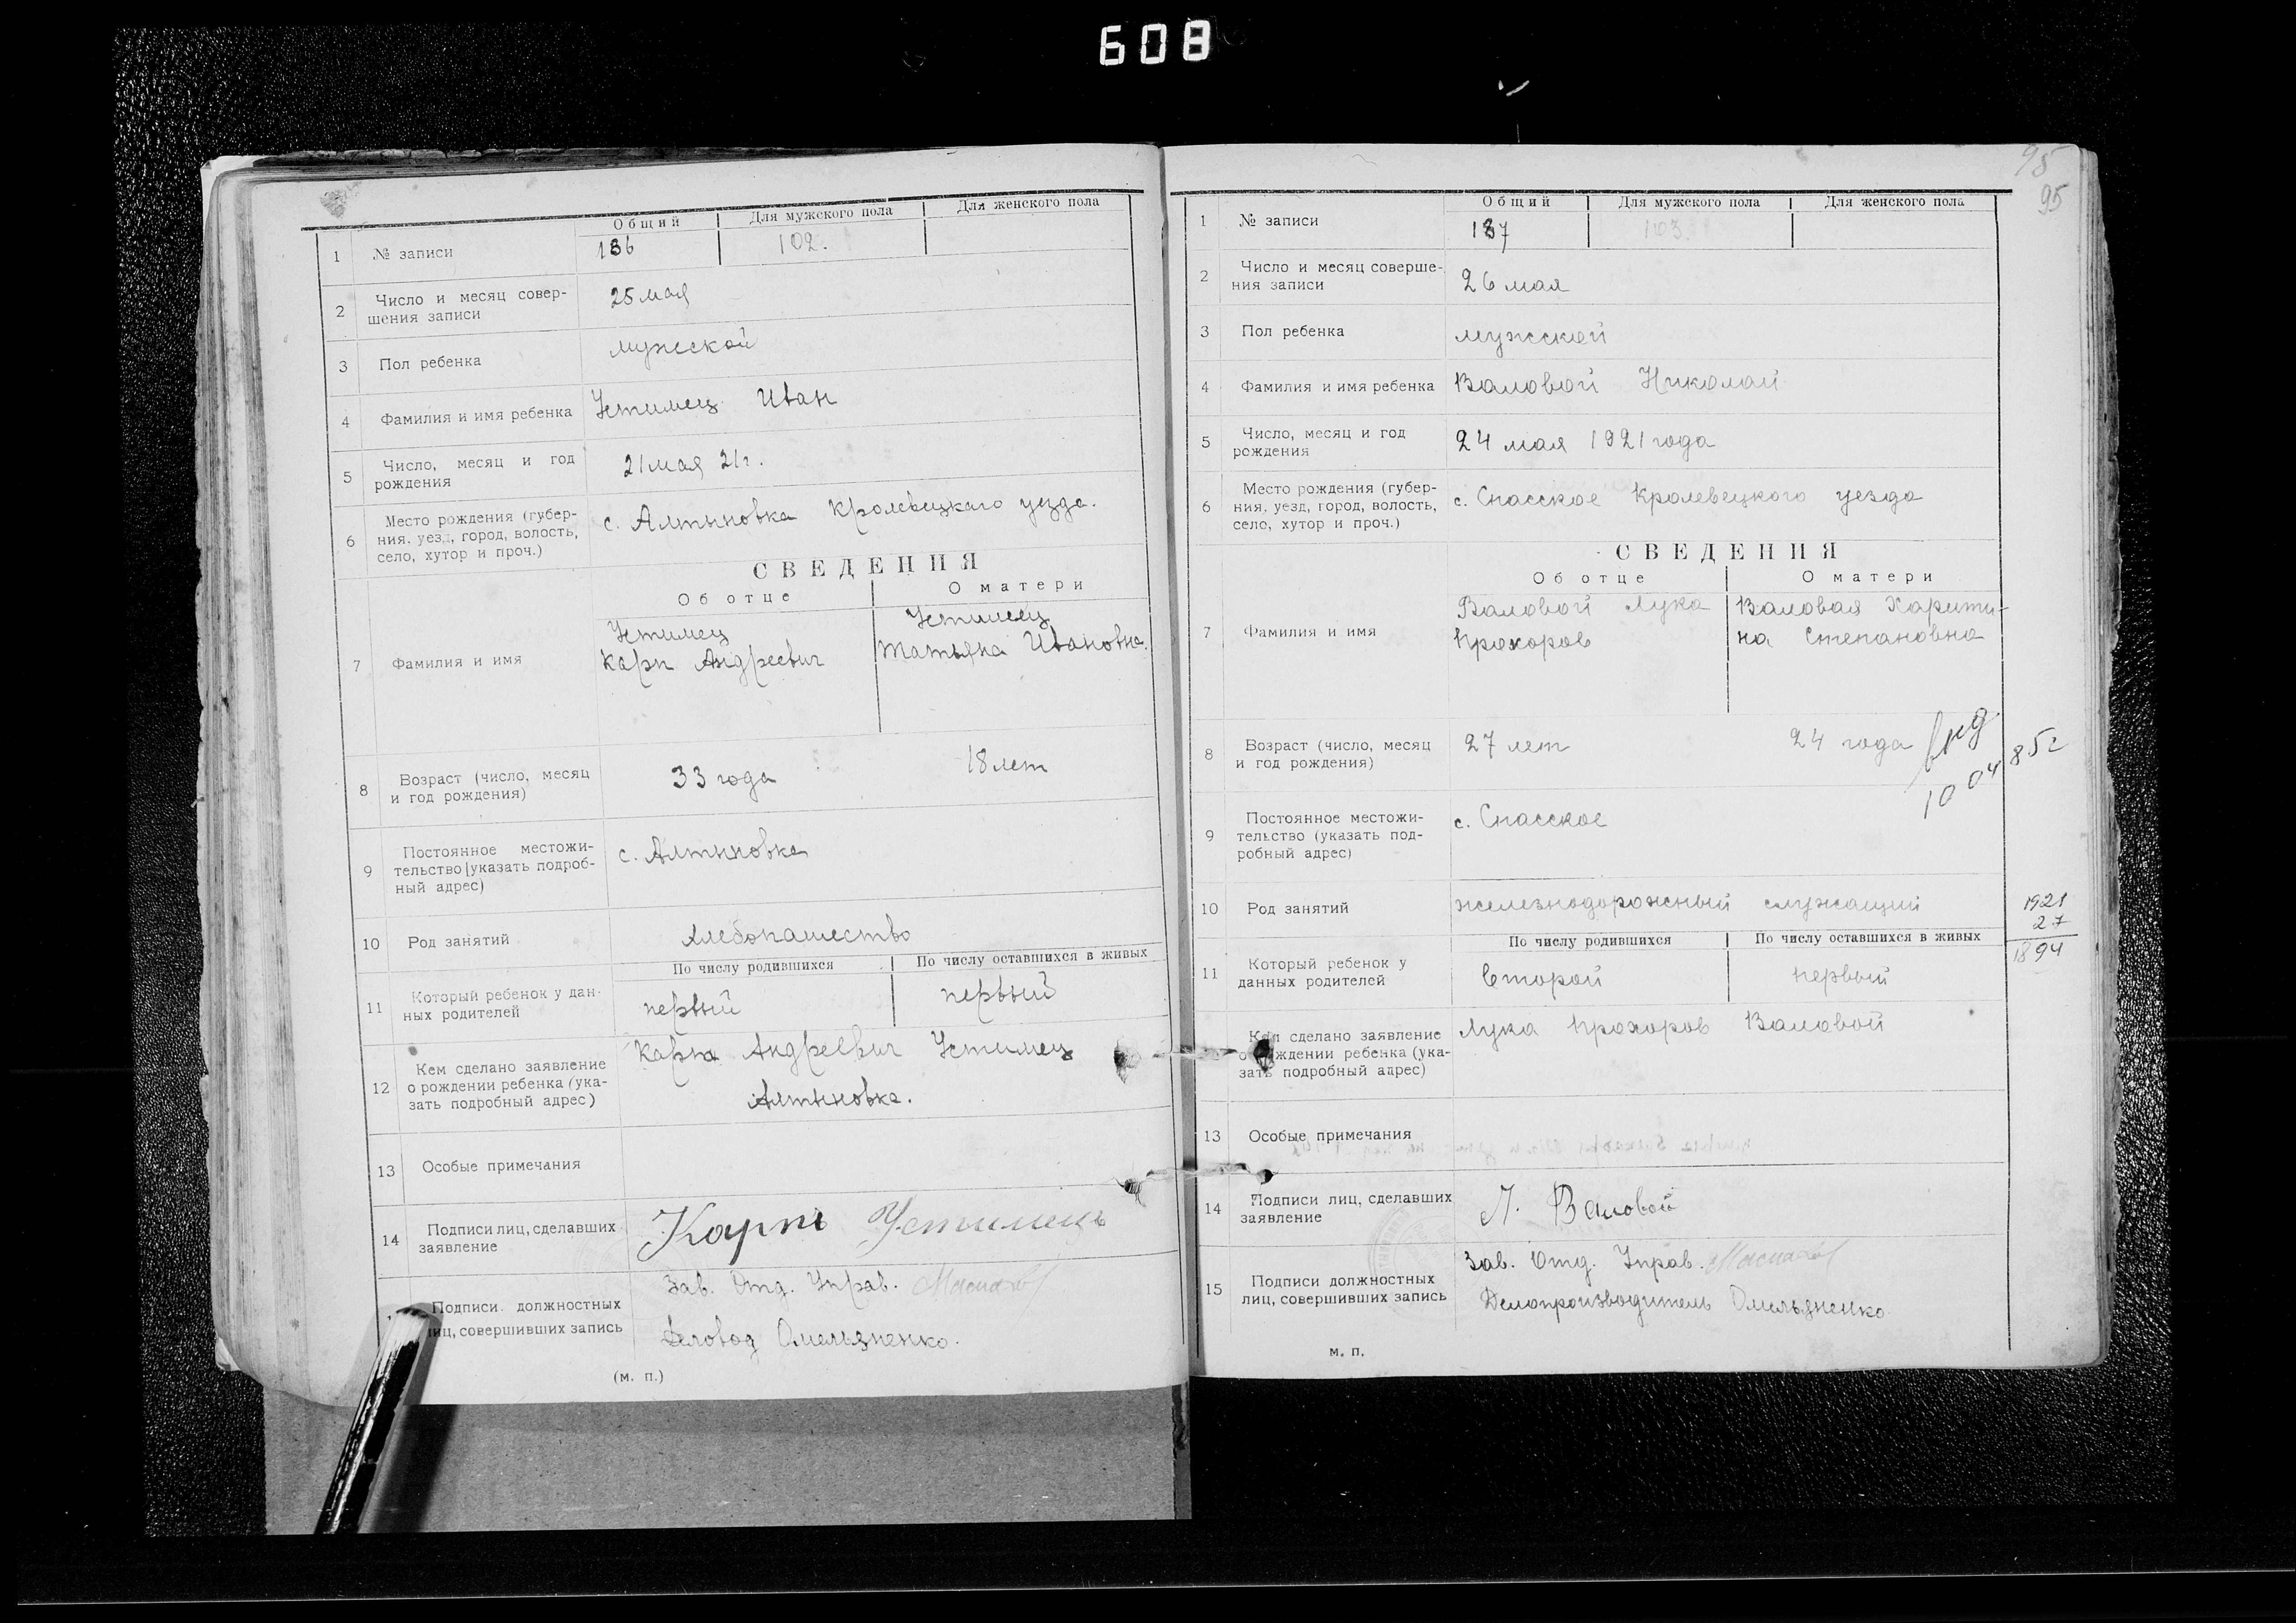 608
Общий Для мужского пола Для женского пола
1 № записи 186 102.
2 Число и месяц совер-
шения записи 25 мая
3 Пол ребенка мужской
4 Фамилия и имя ребенка Устимец Иван
5 Число, месяц и год
рождения 21 мая 21 г.
6 Место рождения (губер-
ния, уезд, город, волость,
село, хутор и проч.) с. Алтыновка Кролевецкаго уезда.
СВЕДЕНИЯ
Об отце О матери
7 Фамилия и имя
Устимец Устимец
Карп Андреевич Татьяна Ивановна.
8 Возраст (число, месяц
и год рождения) 33 года 18 лет
9 Постоянное местожи-
тельство (указать подроб-
ный адрес) с. Алтыновка
10 Род занятий хлебопашество
По числу родившихся По числу оставшихся в живых
11 Который ребенок у дан-
ных родителей первый первый
12 Кем сделано заявление
о рождении ребенка (ука-
зать подробный адрес)
Карп Андреевич Устимец
Алтыновка.
13 Особые примечания
14 Подписи лиц, сделавших
заявление Карпъ Устимець
Подписи должностных
лиц, совершивших запись
Зав. Отд. Управ.
Деловод Омельяненко.
(м. п.)
95
95
Общий Для мужского пола Для женского пола
1 № записи 187 103.
2 Число и месяц соверше-
ния записи 26 мая
3 Пол ребенка мужской
4 Фамилия и имя ребенка Валовой Николай
5 Число, месяц и год
рождения 24 мая 1921 года
6 Место рождения (губер-
ния, уезд, город, волость,
село, хутор и проч.) с. Спасское Кролевецкого уезда
СВЕДЕНИЯ
Об отце О матери
7 Фамилия и имя
Валовой Лука Валовая Харити-
Прохоров на Степановна
8 Возраст (число, месяц
и год рождения) 27 лет 24 года
10 04 85 г
9 Постоянное местожи-
тельство (указать под-
робный адрес) с. Спасское
10 Род занятий железнодорожный служащий
1921
27
1894
По числу родившихся По числу оставшихся в живых
11 Который ребенок у
данных родителей второй первый
Кем сделано заявление
о рождении ребенка (ука-
зать подробный адрес) Лука Прохоров Валовой
13 Особые примечания
14 Подписи лиц, сделавших
заявление Л. Валовой
15 Подписи должностных
лиц, совершивших запись
Зав. Отд. Управ.
Делопроизводитель Омельяненко
м. п.